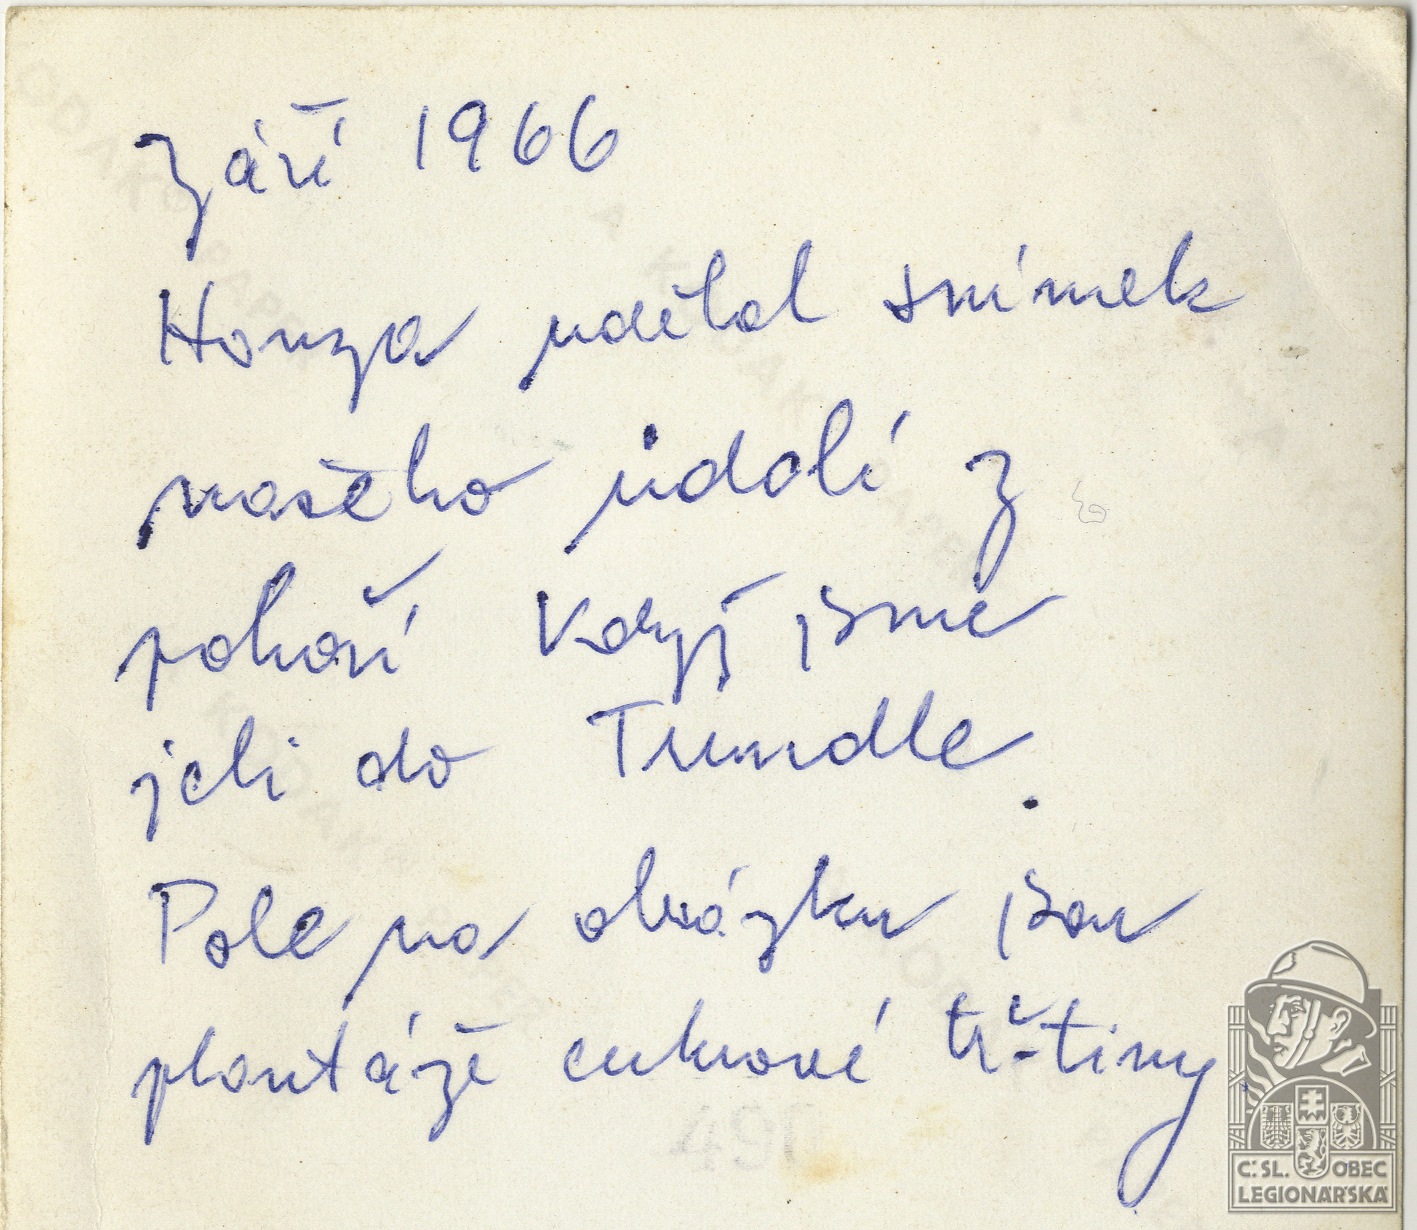 Září 1966
Honza udělal snímek
našeho údolí z
pohoří když jsme
jeli do Tundle.
Pole na obrázku jsou
plantáže cukrové třtiny
Č. SL. OBEC
LEGIONÁŘSKÁ